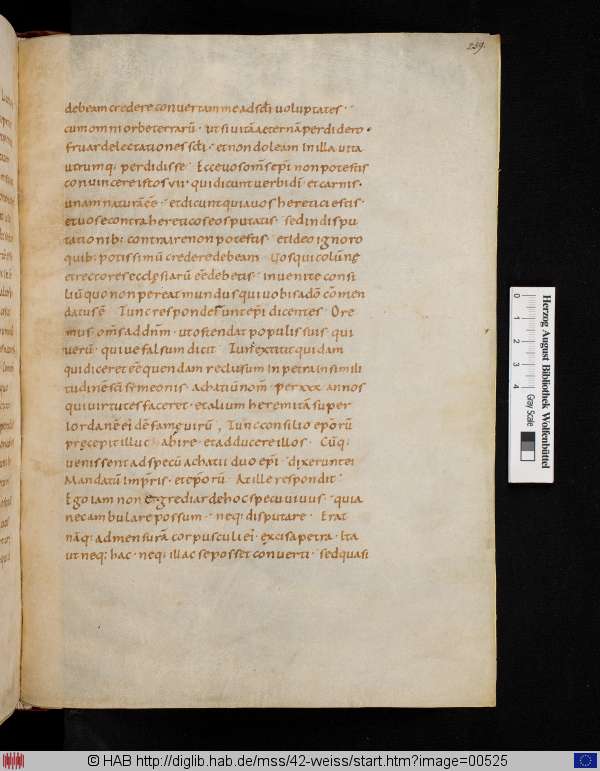 259.
debeam credere convertam me ad scli voluptates ·
cum omni orbe terrarū · ut si vitā aeternā perdidero ·
fruar delectationes scli · et non doleam in illa vita
utrumq; perdidisse · Ecce vos om̄s ep̄i non potestis
convincere istos vii · qui dicunt verbi dī · et carnis ·
unam naturā eē · et dicunt quia vos heretici estis ·
et vos e contra hereticos eos putatis · sed in dispu
tationib; contraire non potestis · et ideo ignoro
quib; potissimū credere debeam · Vos qui colūnę
et rectores ecclesiarū eē debetis · invenite consi
liū quo non pereat mundus qui vobis a dō com̄en
datus ē · Tunc responder̄ ep̄i dicentes · Ore
mus om̄s ad dn̄m · ut ostendat populis suis · qui
verū · qui ve falsum dicit · Tunc extitit quidam
qui diceret eē quendam reclusum in petra in simili
tudinē sc̄i semeonis achatiū nom̄ · per xxx annos
qui virtutes faceret · et alium heremitā super
iordanē ei dē famę virū · Tunc consilio ep̄orū
pręcepit illuc habire · et adducere illos · Cūq;
venissent ad specū achatii duo ep̄i dixerunt ei
Mandatū impr̄is · et ep̄orū At ille respondit
Ego iam non egrediar de hoc specu vivus · quia
nec ambulare possum · neq; disputare · Erat
nāq; ad mensurā corpusculi ei · excisa petra · Ita
ut neq; hac · neq; illac se posset converti · sed quasi
Herzog August Bibliothek Wolfenbüttel
0 1 2 3 4
Gray Scale
© HAB http://diglib.hab.de/mss/42-weiss/start.htm?image=00525